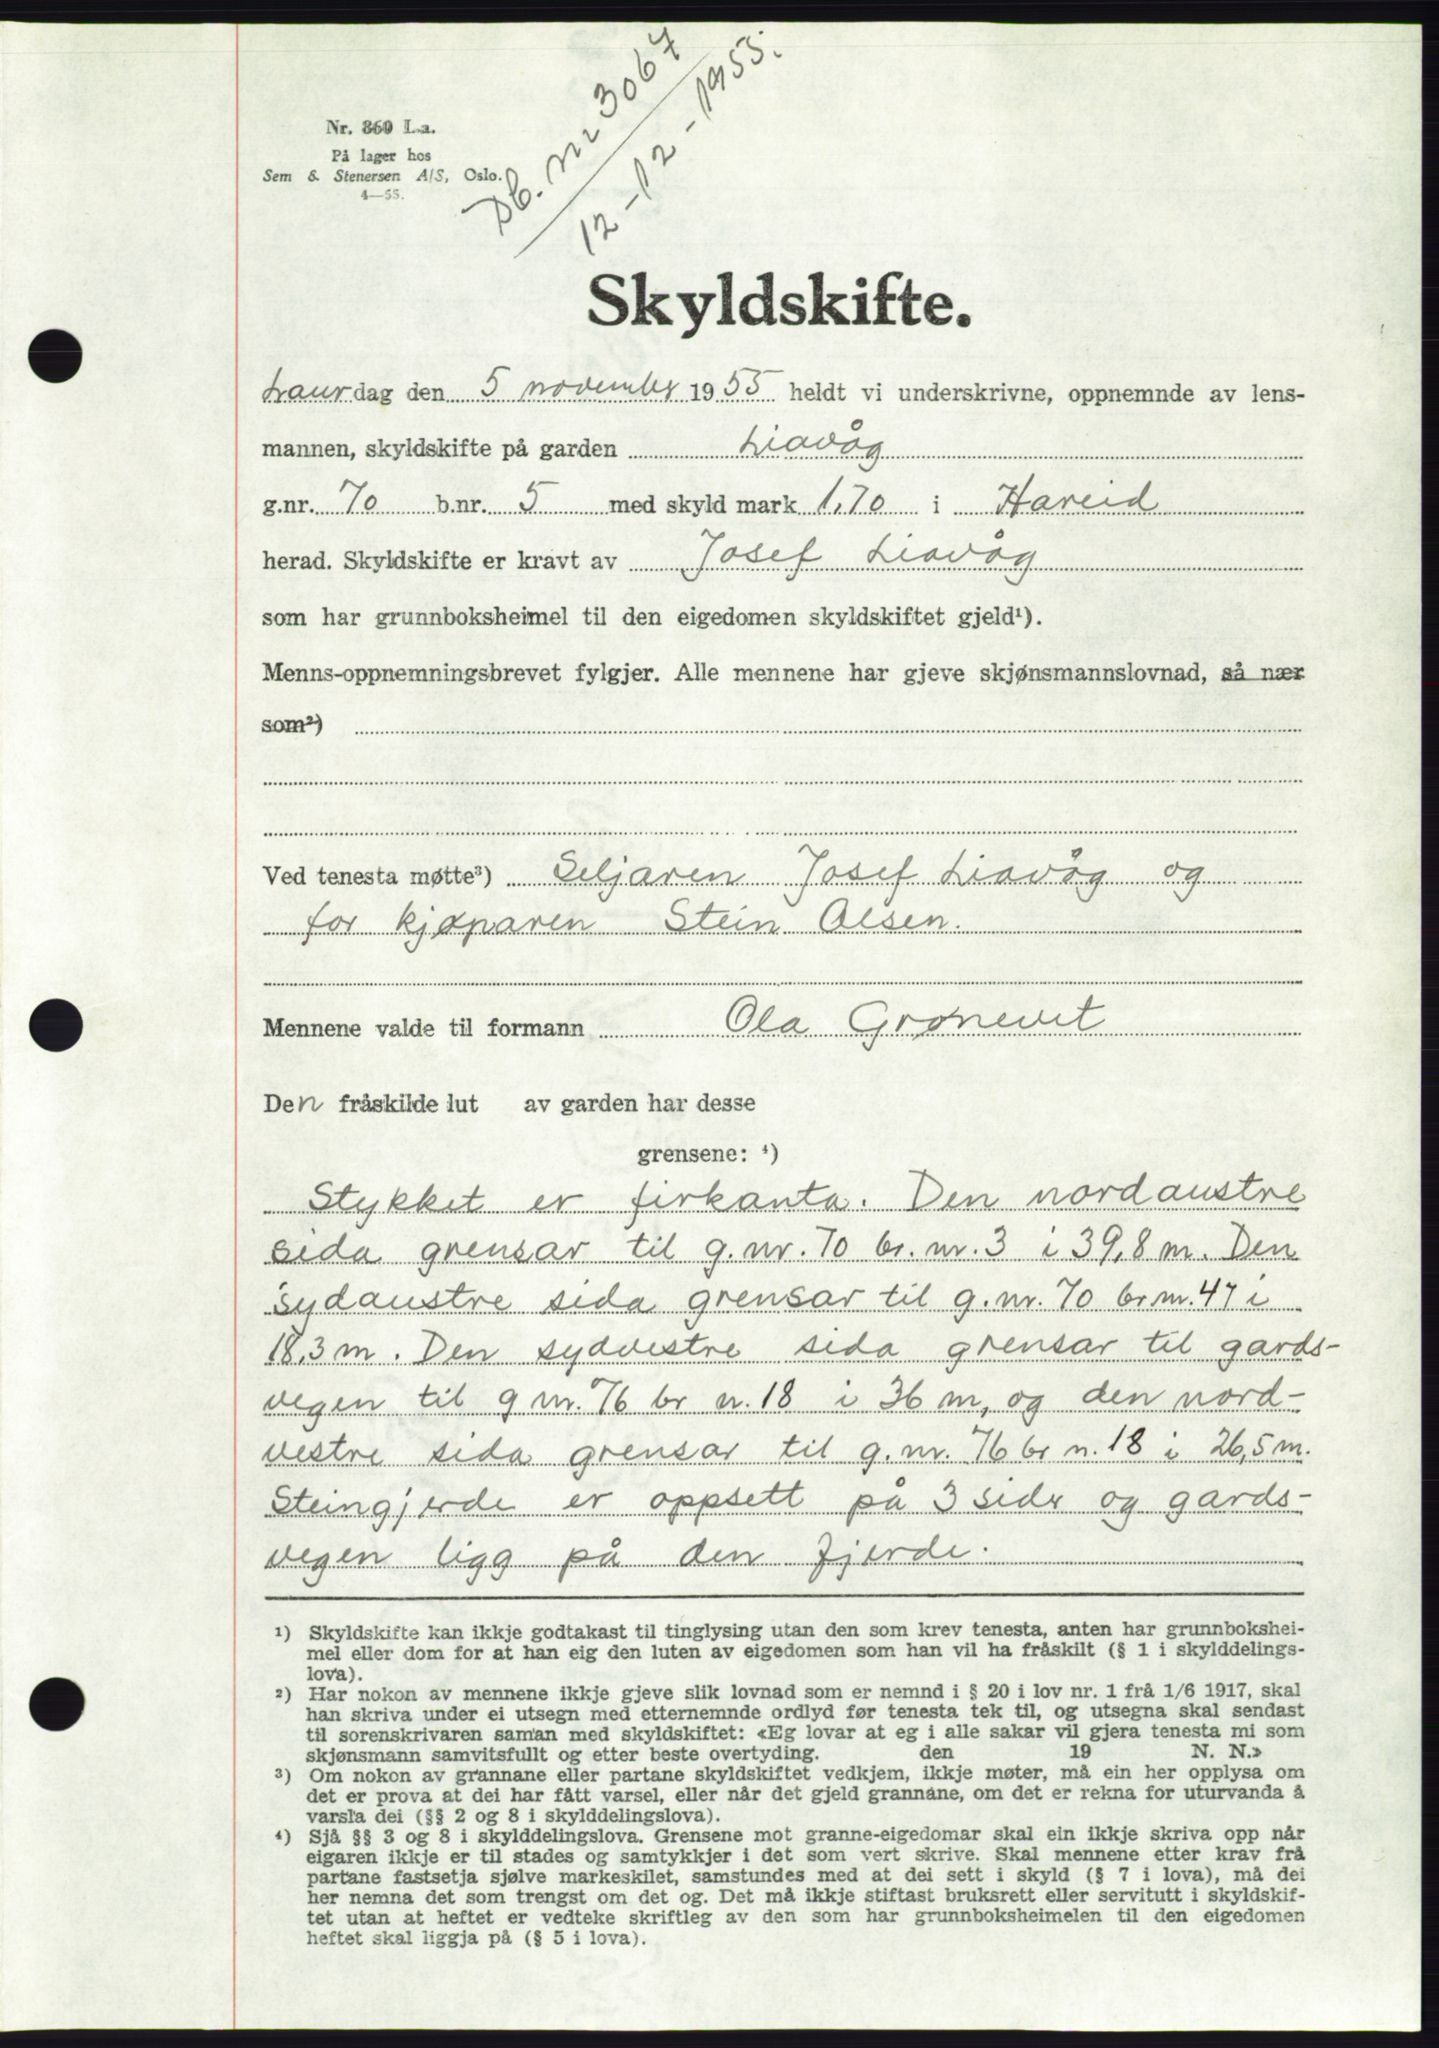 Db. nr 3067
12-12-1955.
Nr. 860 L.a.
På lager hos
Sem & Stenersen A/S, Oslo.
4—55.
Skyldskifte.
Laurdag den 5 november 1955 heldt vi underskrivne, oppnemnde av lens-
mannen, skyldskifte på garden Liavåg
g.nr. 70 b.nr. 5 med skyld mark 1,70 i Hareid
herad. Skyldskifte er kravt av Josef Liavåg
som har grunnboksheimel til den eigedomen skyldskiftet gjeld¹).
Menns-oppnemningsbrevet fylgjer. Alle mennene har gjeve skjønsmannslovnad, så nær
som²)
Ved tenesta møtte³) Seljaren Josef Liavåg og
for kjøparen Stein Olsen.
Mennene valde til formann Ola Grønevet
Den fråskilde lut av garden har desse
grensene: ⁴)
Stykket er firkanta. Den nordaustre
sida grensar til g.nr. 70 br. nr. 3 i 39,8 m. Den
sydaustre sida grensar til g.nr. 70 br.nr. 47 i
18,3 m. Den sydvestre sida grensar til gards-
vegen til g nr. 76 br n. 18 i 36 m, og den nord-
vestre sida grensar til g.nr. 76 br n. 18 i 26,5 m.
Steingjerde er oppsett på 3 sider og gards-
vegen ligg på den fjerde.
¹) Skyldskifte kan ikkje godtakast til tinglysing utan den som krev tenesta, anten har grunnbokshei-
mel eller dom for at han eig den luten av eigedomen som han vil ha fråskilt (§ 1 i skylddelings-
lova).
²) Har nokon av mennene ikkje gjeve slik lovnad som er nemnd i § 20 i lov nr. 1 frå 1/6 1917, skal
han skriva under ei utsegn med etternemnde ordlyd før tenesta tek til, og utsegna skal sendast
til sorenskrivaren saman med skyldskiftet: «Eg lovar at eg i alle sakar vil gjera tenesta mi som
skjønsmann samvitsfullt og etter beste overtyding. den 19 N. N.»
³) Om nokon av grannane eller partane skyldskiftet vedkjem, ikkje møter, må ein her opplysa om
det er prova at dei har fått varsel, eller når det gjeld grannane, om det er rekna for uturvanda å
varsla dei (§§ 2 og 8 i skylddelingslova).
⁴) Sjå §§ 3 og 8 i skylddelingslova. Grensene mot granne-eigedomar skal ein ikkje skriva opp når
eigaren ikkje er til stades og samtykkjer i det som vert skrive. Skal mennene etter krav frå
partane fastsetja sjølve markeskilet, samstundes med at dei sett i skyld (§ 7 i lova), må dei
her nemna det som trengst om det og. Det må ikkje stiftast bruksrett eller servitutt i skyldskif-
tet utan at heftet er vedteke skriftleg av den som har grunnboksheimelen til den eigedomen
heftet skal liggja på (§ 5 i lova).